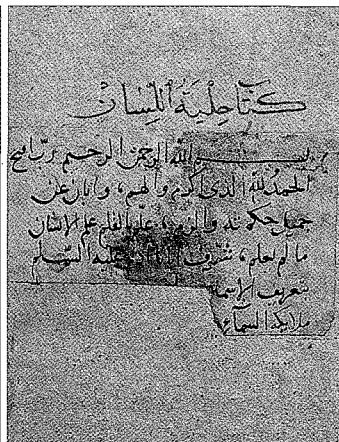 كتاب حلية اللسان
بسم الله الرحمن الرحيم رب افتح
الحمد لله الذى اكرم والهم، وابان عن
جميل حكمته والزم، علم بالقلم علم الإنسان
ما لم يعلم، شرف آدم عليه السلام
بتعريف الاسماء
ملائكة السماء